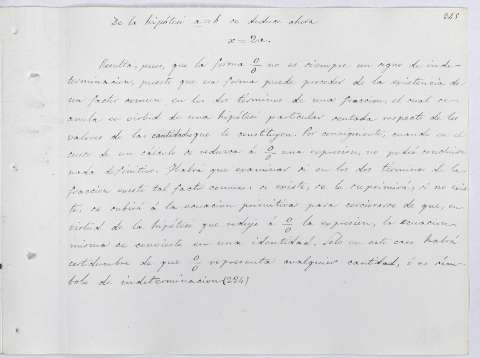 245
De la hipótesi a=b se deduce ahora
x=2a.
Resulta, pues, que la forma 0/0 no es siempre un signo de inde-
terminacion, puesto que esa forma puede proceder de la existencia de
un factor comun en los dos términos de una fraccion, el cual se
anula en virtud de una hipótesi particular sentada respecto de los
valores de las cantidades que le constituyen. Por consiguiente, cuando en el
curso de un cálculo se reduzca á 0/0 una expresion, no podrá considerar
nada definitivo. Habrá que examinar si en los dos términos de la
fraccion existe tal factor comun; si existe, se le suprimirá; si no exis-
te, se subirá á la ecuacion primitiva para cerciorarse de que, en
virtud de la hipótesi que redujo á 0/0 la expresion, la ecuacion
misma se convierte en una identidad. Sólo en este caso habrá
certidumbre de que 0/0 representa cualquier cantidad, ó es sím-
bolo de indeterminacion (224)